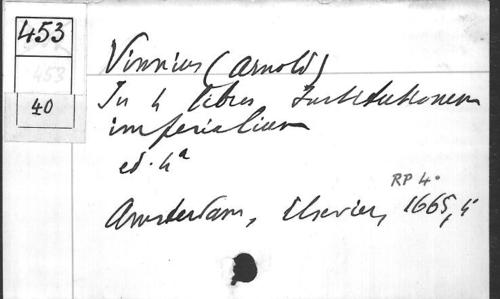 453
453
40
Vinnius (Arnold)
In 4 libros Institutionum
imperialium
ed. 4a
RP 4°
Amsterdam, Elsevier, 1665, 4°